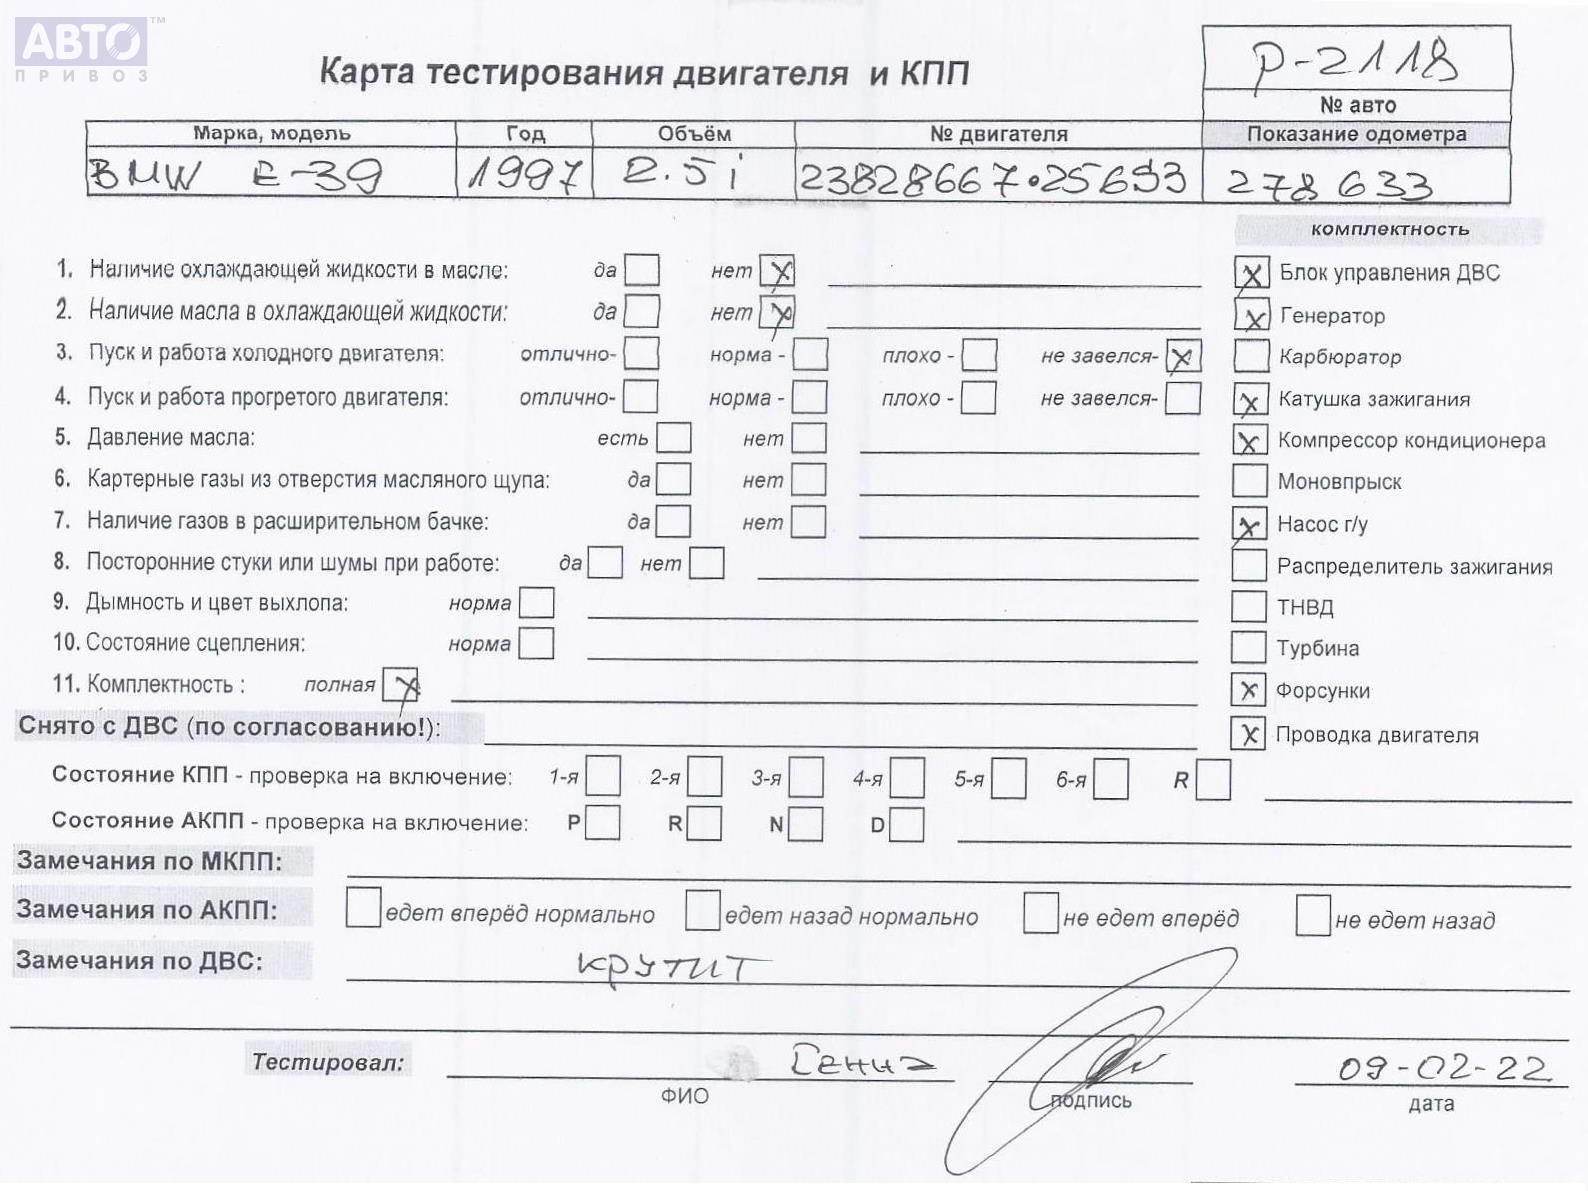 АВТО ™
ПРИВОЗ
Карта тестирования двигателя и КПП
Р-2118
№ авто
Марка, модель Год Объём № двигателя Показание одометра
BMW E-39 1997 2.5i 23828667·25693 278633
комплектность
1. Наличие охлаждающей жидкости в масле: да нет x
x Блок управления ДВС
2. Наличие масла в охлаждающей жидкости: да нет x
x Генератор
3. Пуск и работа холодного двигателя: отлично- норма - плохо - не завелся- x
Карбюратор
4. Пуск и работа прогретого двигателя: отлично- норма - плохо - не завелся-
x Катушка зажигания
5. Давление масла: есть нет
x Компрессор кондиционера
6. Картерные газы из отверстия масляного щупа: да нет
Моновпрыск
7. Наличие газов в расширительном бачке: да нет
x Насос г/у
8. Посторонние стуки или шумы при работе: да нет
Распределитель зажигания
9. Дымность и цвет выхлопа: норма
ТНВД
10. Состояние сцепления: норма
Турбина
11. Комплектность : полная x
x Форсунки
Снято с ДВС (по согласованию!):
x Проводка двигателя
Состояние КПП - проверка на включение: 1-я 2-я 3-я 4-я 5-я 6-я R
Состояние АКПП - проверка на включение: P R N D
Замечания по МКПП:
Замечания по АКПП: едет вперёд нормально едет назад нормально не едет вперёд не едет назад
Замечания по ДВС: крутит
Тестировал: 09-02-22
ФИО подпись дата